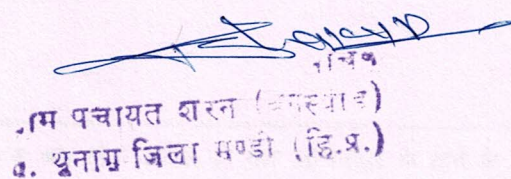 सचिव
ग्राम पंचायत शरन (बगस्याड)
वि. थुनाग जिला मण्डी (हि.प्र.)